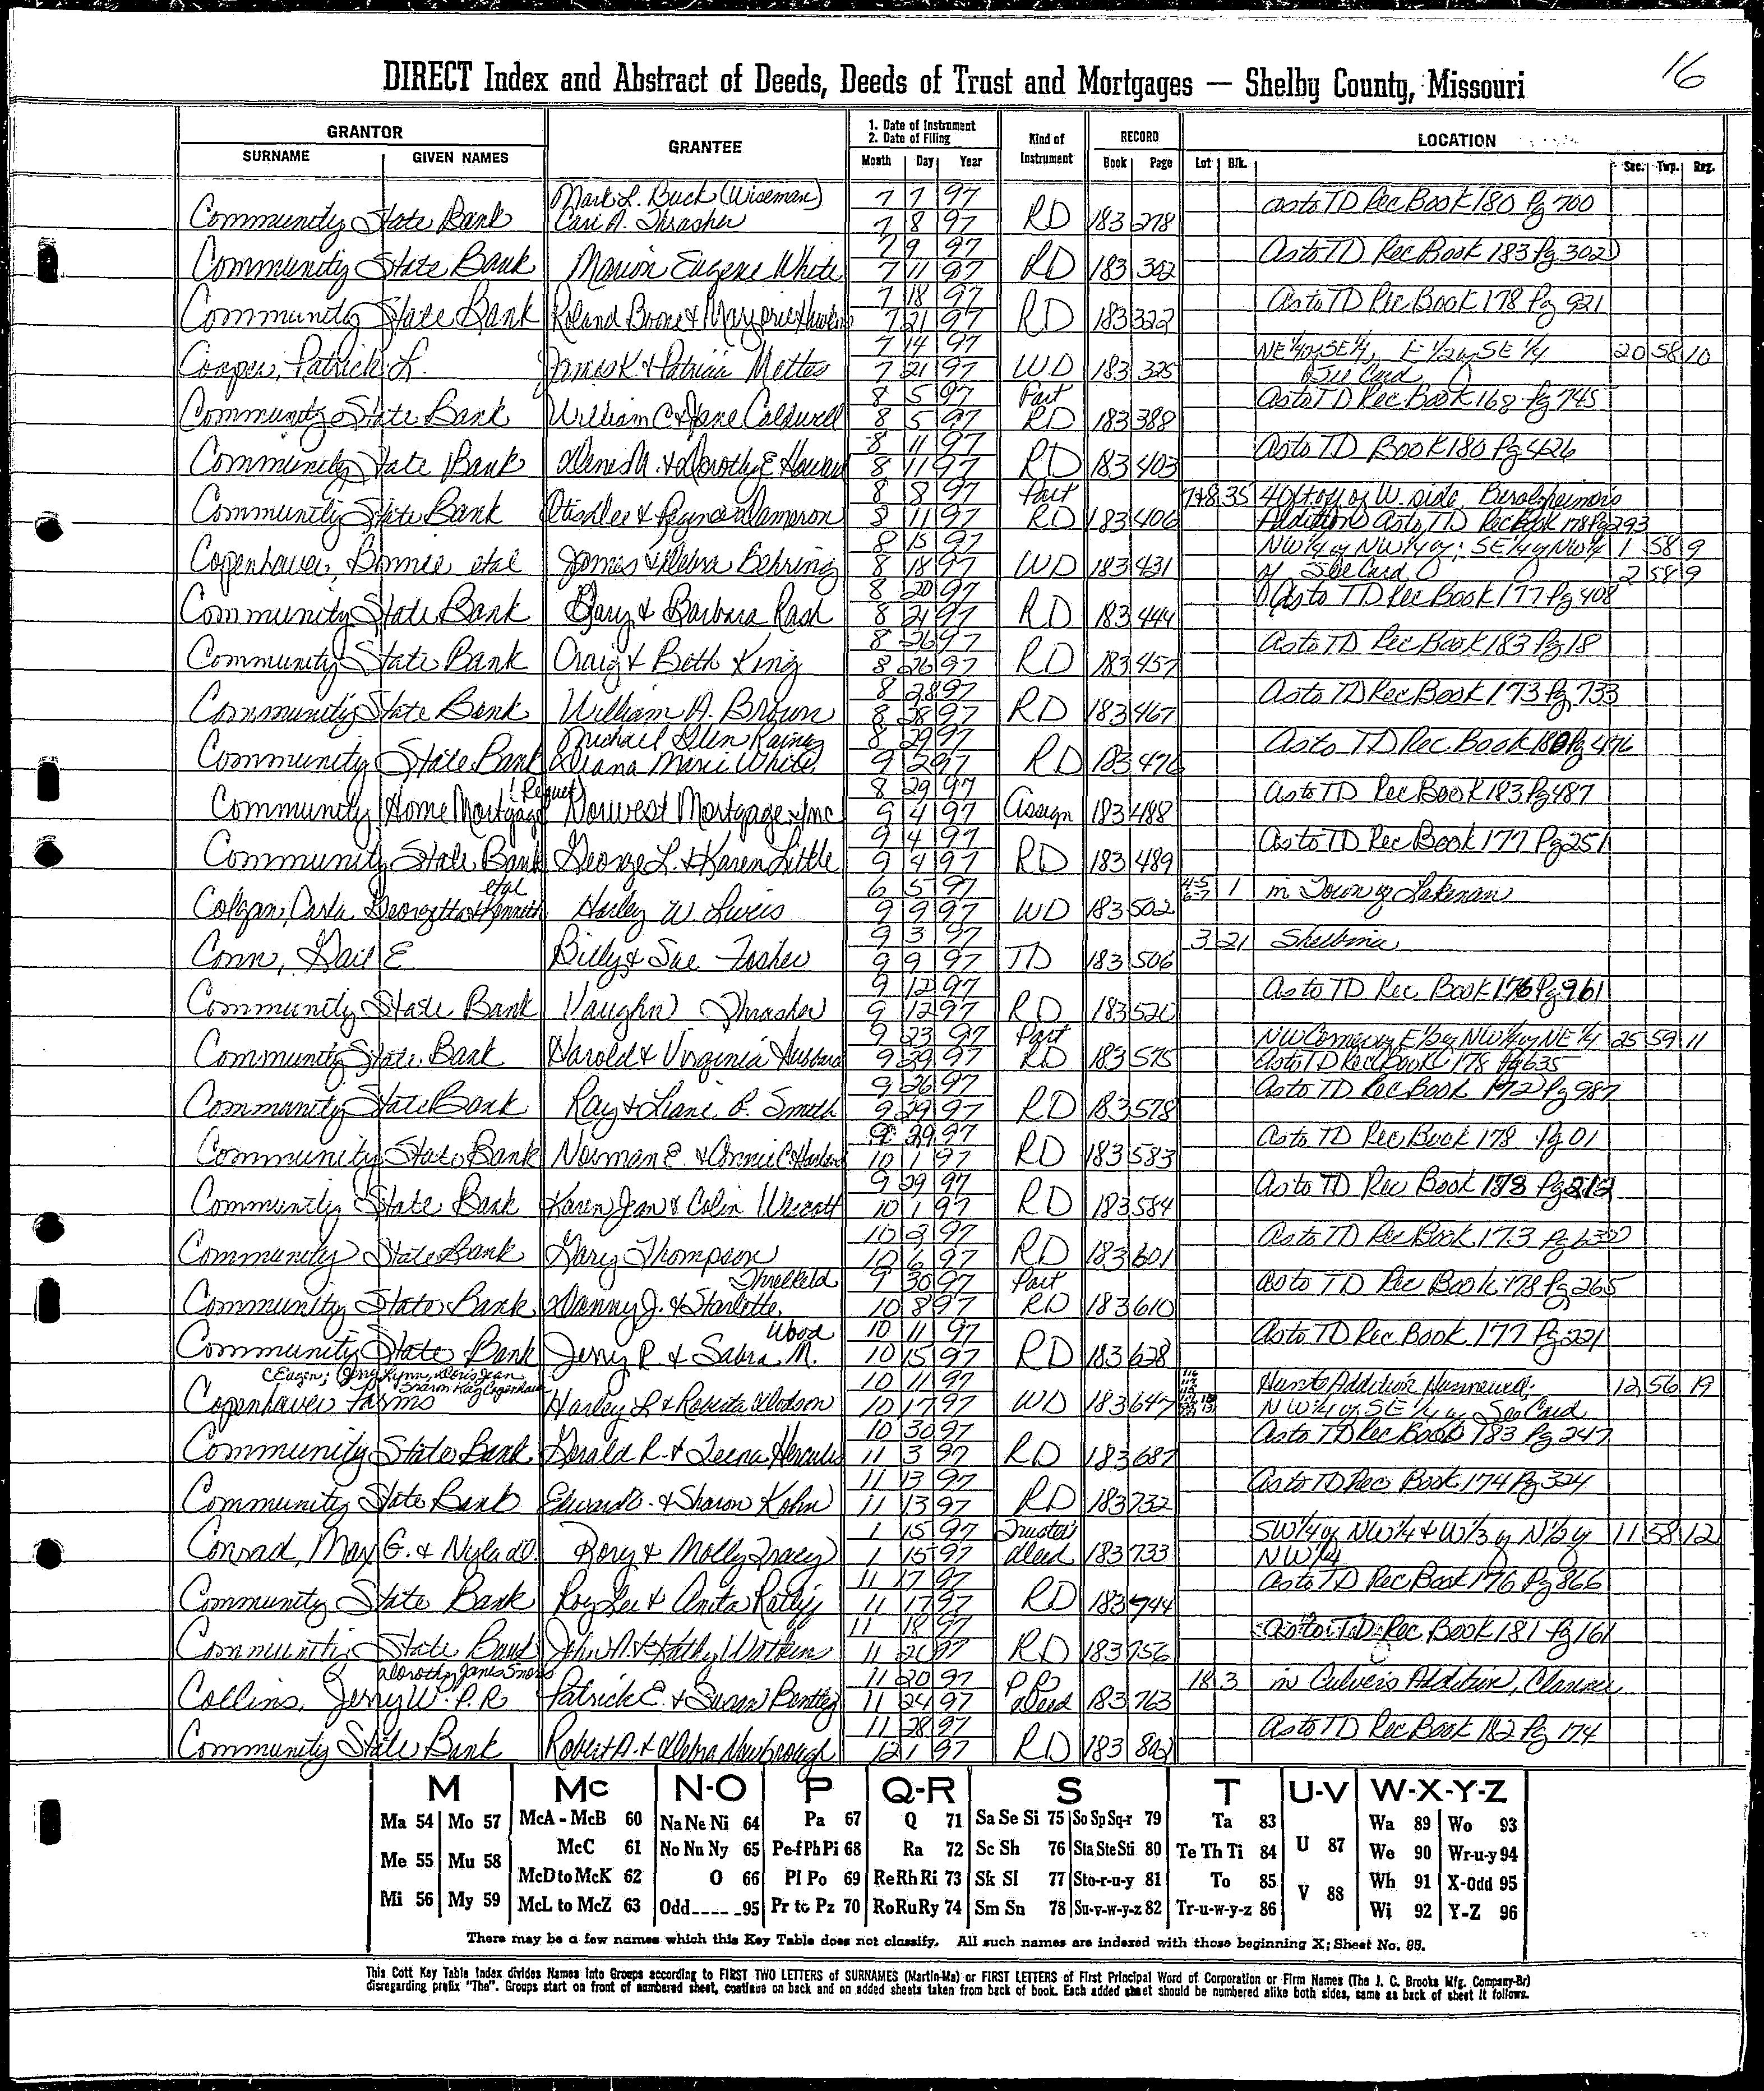 16
DIRECT Index and Abstract of Deeds, Deeds of Trust and Mortgages — Shelby County, Missouri
GRANTOR GRANTEE 1. Date of Instrument 2. Date of Filing Kind of Instrument RECORD LOCATION
SURNAME GIVEN NAMES Month Day Year Book Page Lot Blk. Sec. Twp. Rng.
Mark L. Buck (Wiseman) 7 7 97 as to TD Rec Book 180 Pg 700
Community State Bank Cari A. Thrasher 7 8 97 RD 183 278
7 9 97 As to TD Rec Book 183 Pg 302
Community State Bank Marion Eugene White 7 11 97 RD 183 302
7 18 97 As to TD Rec Book 178 Pg 921
Community State Bank Roland Boone & Marjorie 7 21 97 RD 183 322
7 14 97 NE 1/4 of SE 1/4, E 1/2 of SE 1/4 20 58 10
Cooper, Patrick L. James K. & Patricia Mettes 7 21 97 WD 183 325 See Card
8 5 97 Part As to TD Rec Book 168 Pg 745
Community State Bank William C & Jane Caldwell 8 5 97 RD 183 388
8 11 97 As to TD Book 180 Pg 426
Community State Bank & Dorothy E 8 11 97 RD 183 403
8 8 97 Part 7+8 35 40ft off of W. side,
Community State Bank Dameron 8 11 97 RD 183 406 Addition as to TD Rec Book 178 Pg 293
8 15 97 NW 1/4 of NW 1/4 of; SE 1/4 of NW 1/4 1 58 9
Copenhaver, Bonnie etal James & Debra Behring 8 18 97 WD 183 431 of See Card 2 58 9
8 20 97 As to TD Rec Book 177 Pg 408
Community State Bank Gary & Barbara Rash 8 21 97 RD 183 444
8 26 97 As to TD Rec Book 183 Pg 18
Community State Bank Craig & Beth King 8 26 97 RD 183 457
8 28 97 As to TD Rec Book 173 Pg 733
Community State Bank William A. Brown 8 28 97 RD 183 467
Michael Glen Rainey 8 29 97 As to TD Rec. Book 180 Pg 476
Community State Bank Diana Marie White 9 2 97 RD 183 476
8 29 97 As to TD Rec Book 183 Pg 487
Community Home Mortgage Norwest Mortgage Inc 9 4 97 Assign 183 488
9 4 97 As to TD Rec Book 177 Pg 251
Community State Bank George L. & Karen Little 9 4 97 RD 183 489
etal 6 5 97 4-5 6-7 1 in Town of Lakenan
Colgan, Carla Kenneth Harley W. Lewis 9 9 97 WD 183 502
9 3 97 3 21 Shelbina
Conn, Gail E. Billy & Sue Fosher 9 9 97 TD 183 506
9 12 97 As to TD Rec Book 176 Pg 961
Community State Bank Vaughn Thrasher 9 12 97 RD 183 520
9 23 97 Part NW Corner of E 1/2 of NW 1/4 of NE 1/4 25 59 11
Community State Bank Harold & Virginia Hubbard 9 29 97 RD 183 575 As to TD Rec Book 178 Pg 635
9 26 97 As to TD Rec Book 172 Pg 987
Community State Bank Ray & Liane R. Smith 9 29 97 RD 183 578
9 29 97 As to TD Rec Book 178 Pg 01
Community State Bank Norman E. & Connie C. 10 1 97 RD 183 583
9 29 97 As to TD Rec Book 178 Pg 212
Community State Bank Karen Jean & Colin 10 1 97 RD 183 584
10 3 97 As to TD Rec Book 173 Pg
Community State Bank Gary Thompson 10 6 97 RD 183 601
Threlkeld 9 30 97 Part As to TD Rec Book 178 Pg 265
Community State Bank Danny J. & Starlette 10 8 97 RD 183 610
Wood 10 11 97 As to TD Rec Book 177 Pg 221
Community State Bank Jerry R & Sabra M. 10 15 97 RD 183 628
Lynn, Doris Jean 10 11 97 Hunt's Addition Hunnewell: 12 56 19
Copenhaver Farms Sharon Kay Copenhaver Harley L & Roberta Dodson 10 17 97 WD 183 647 NW 1/4 of SE 1/4 of See Card
10 30 97 As to TD Rec Book 183 Pg 247
Community State Bank Gerald R. & Teena Hercules 11 3 97 RD 183 687
11 13 97 As to TD Rec Book 174 Pg 324
Community State Bank & Sharon Kohn 11 13 97 RD 183 732
1 15 97 Trustee's SW 1/4 of NW 1/4 & W 1/3 of N 1/2 of 11 58 12
Conrad, Max G. & Nyla D. Rory & Molly Tracy 1 15 97 Deed 183 733 NW 1/4
11 17 97 As to TD Rec Book 176 Pg 866
Community State Bank Roy Lee & Anita Ratliff 11 17 97 RD 183 744
11 18 97 As to TD Rec. Book 181 Pg 161
Community State Bank John A. & Kathy Watkins 11 20 97 RD 183 756
Dorothy Janes 11 20 97 P R 18 3 in Culver's Addition, Clarence
Collins, Jerry W. P.R. Patrick E. & Susan Bentley 11 24 97 Deed 183 763
11 28 97 As to TD Rec Book 182 Pg 174
Community State Bank Robert A. & Debra Newbrough 12 1 97 RD 183 802
M Mc N-O P Q-R S T U-V W-X-Y-Z
Ma 54 Mo 57 McA - McB 60 Na Ne Ni 64 Pa 67 Q 71 Sa Se Si 75 So Sp Sq-r 79 Ta 83 Wa 89 Wo 93
McC 61 No Nu Ny 65 Pe-f Ph Pi 68 Ra 72 Sc Sh 76 Sta Ste Sti 80 Te Th Ti 84 U 87 We 90 Wr-u-y 94
Me 55 Mu 58 McD to McK 62 O 66 Pl Po 69 Re Rh Ri 73 Sk Sl 77 Sto-r-u-y 81 To 85 Wh 91 X-Odd 95
Mi 56 My 59 McL to McZ 63 Odd---- -95 Pr to Pz 70 Ro Ru Ry 74 Sm Sn 78 Su-v-w-y-z 82 Tr-u-w-y-z 86 V 88 Wi 92 Y-Z 96
There may be a few names which this Key Table does not classify. All such names are indexed with those beginning X; Sheet No. 95.
This Cott Key Table Index divides Names into Groups according to FIRST TWO LETTERS of SURNAMES (Martin-Ma) or FIRST LETTERS of First Principal Word of Corporation or Firm Names (The J. C. Brooks Mfg. Company-Br)
disregarding prefix "The". Groups start on front of numbered sheet, continue on back and on added sheets taken from back of book. Each added sheet should be numbered alike both sides, same as back of sheet it follows.